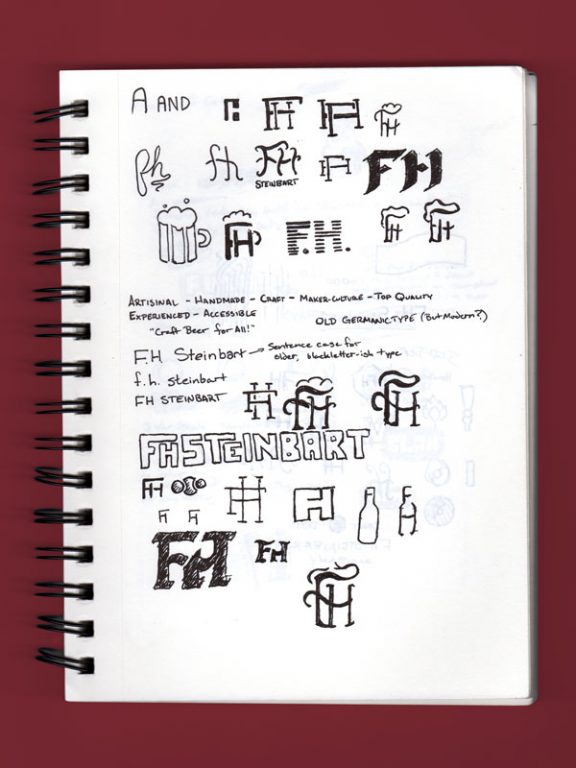 A AND FH FH FH
fh fh FH STEINBART FH FH
FH F.H. FH FH
ARTISINAL - HANDMADE - CRAFT - MAKER-CULTURE - TOP QUALITY
EXPERIENCED - ACCESSIBLE
OLD GERMANIC TYPE (BUT MODERN?)
"CRAFT BEER FOR ALL!"
F.H. Steinbart → Sentence case for
older, blackletter-ish type
f.h. steinbart
FH STEINBART FH FH FH
FH STEINBART
FH FH FH FH FH FH
FH FH
FH